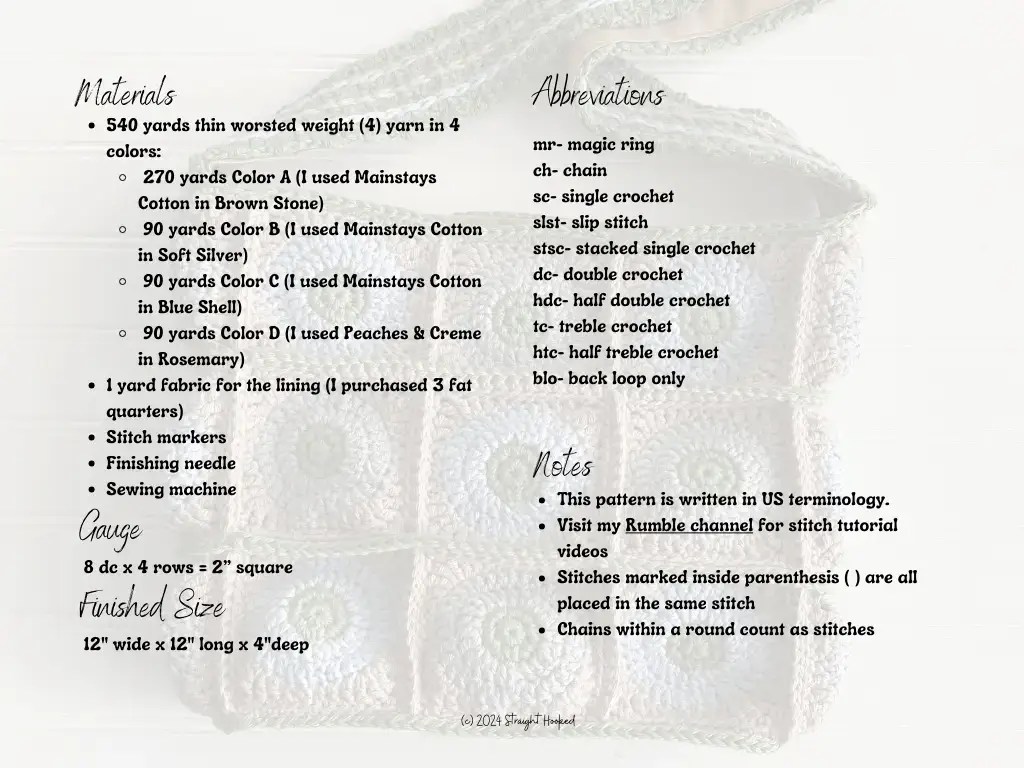 Materials
• 540 yards thin worsted weight (4) yarn in 4
colors:
○ 270 yards Color A (I used Mainstays
Cotton in Brown Stone)
○ 90 yards Color B (I used Mainstays Cotton
in Soft Silver)
○ 90 yards Color C (I used Mainstays Cotton
in Blue Shell)
○ 90 yards Color D (I used Peaches & Creme
in Rosemary)
• 1 yard fabric for the lining (I purchased 3 fat
quarters)
• Stitch markers
• Finishing needle
• Sewing machine
Gauge
8 dc x 4 rows = 2” square
Finished Size
12" wide x 12" long x 4"deep
Abbreviations
mr- magic ring
ch- chain
sc- single crochet
slst- slip stitch
stsc- stacked single crochet
dc- double crochet
hdc- half double crochet
tc- treble crochet
htc- half treble crochet
blo- back loop only
Notes
• This pattern is written in US terminology.
• Visit my Rumble channel for stitch tutorial
videos
• Stitches marked inside parenthesis ( ) are all
placed in the same stitch
• Chains within a round count as stitches
(c) 2024 Straight Hooked